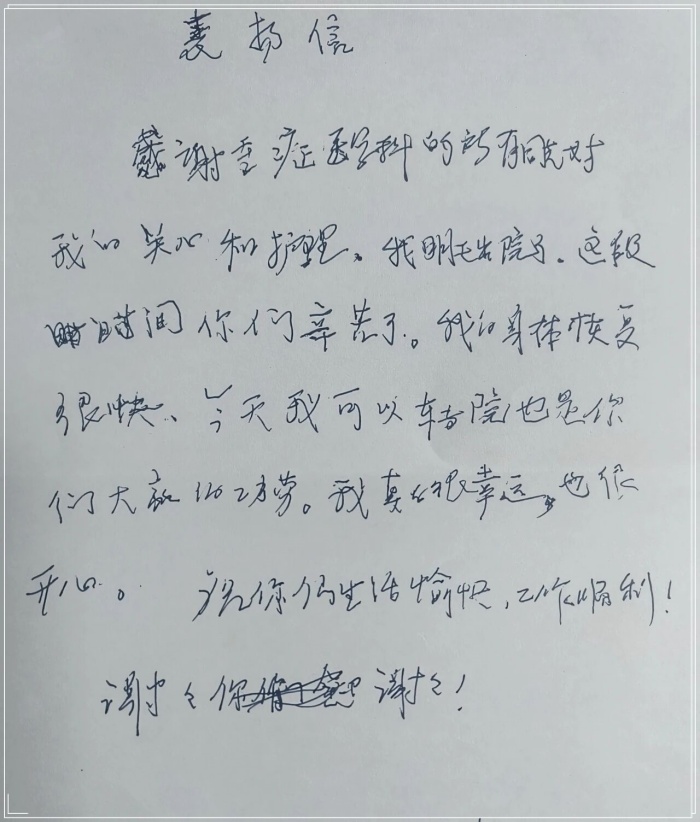 表扬信
感谢重症医学科的所有医护对
我的关心和护理。我明天出院了。这段
时间你们辛苦了。我的身体恢复
很快、今天我可以转院也是你
们大家的功劳。我真的很幸运,也很
开心。 祝你们生活愉快,工作顺利!
谢谢你 谢谢!